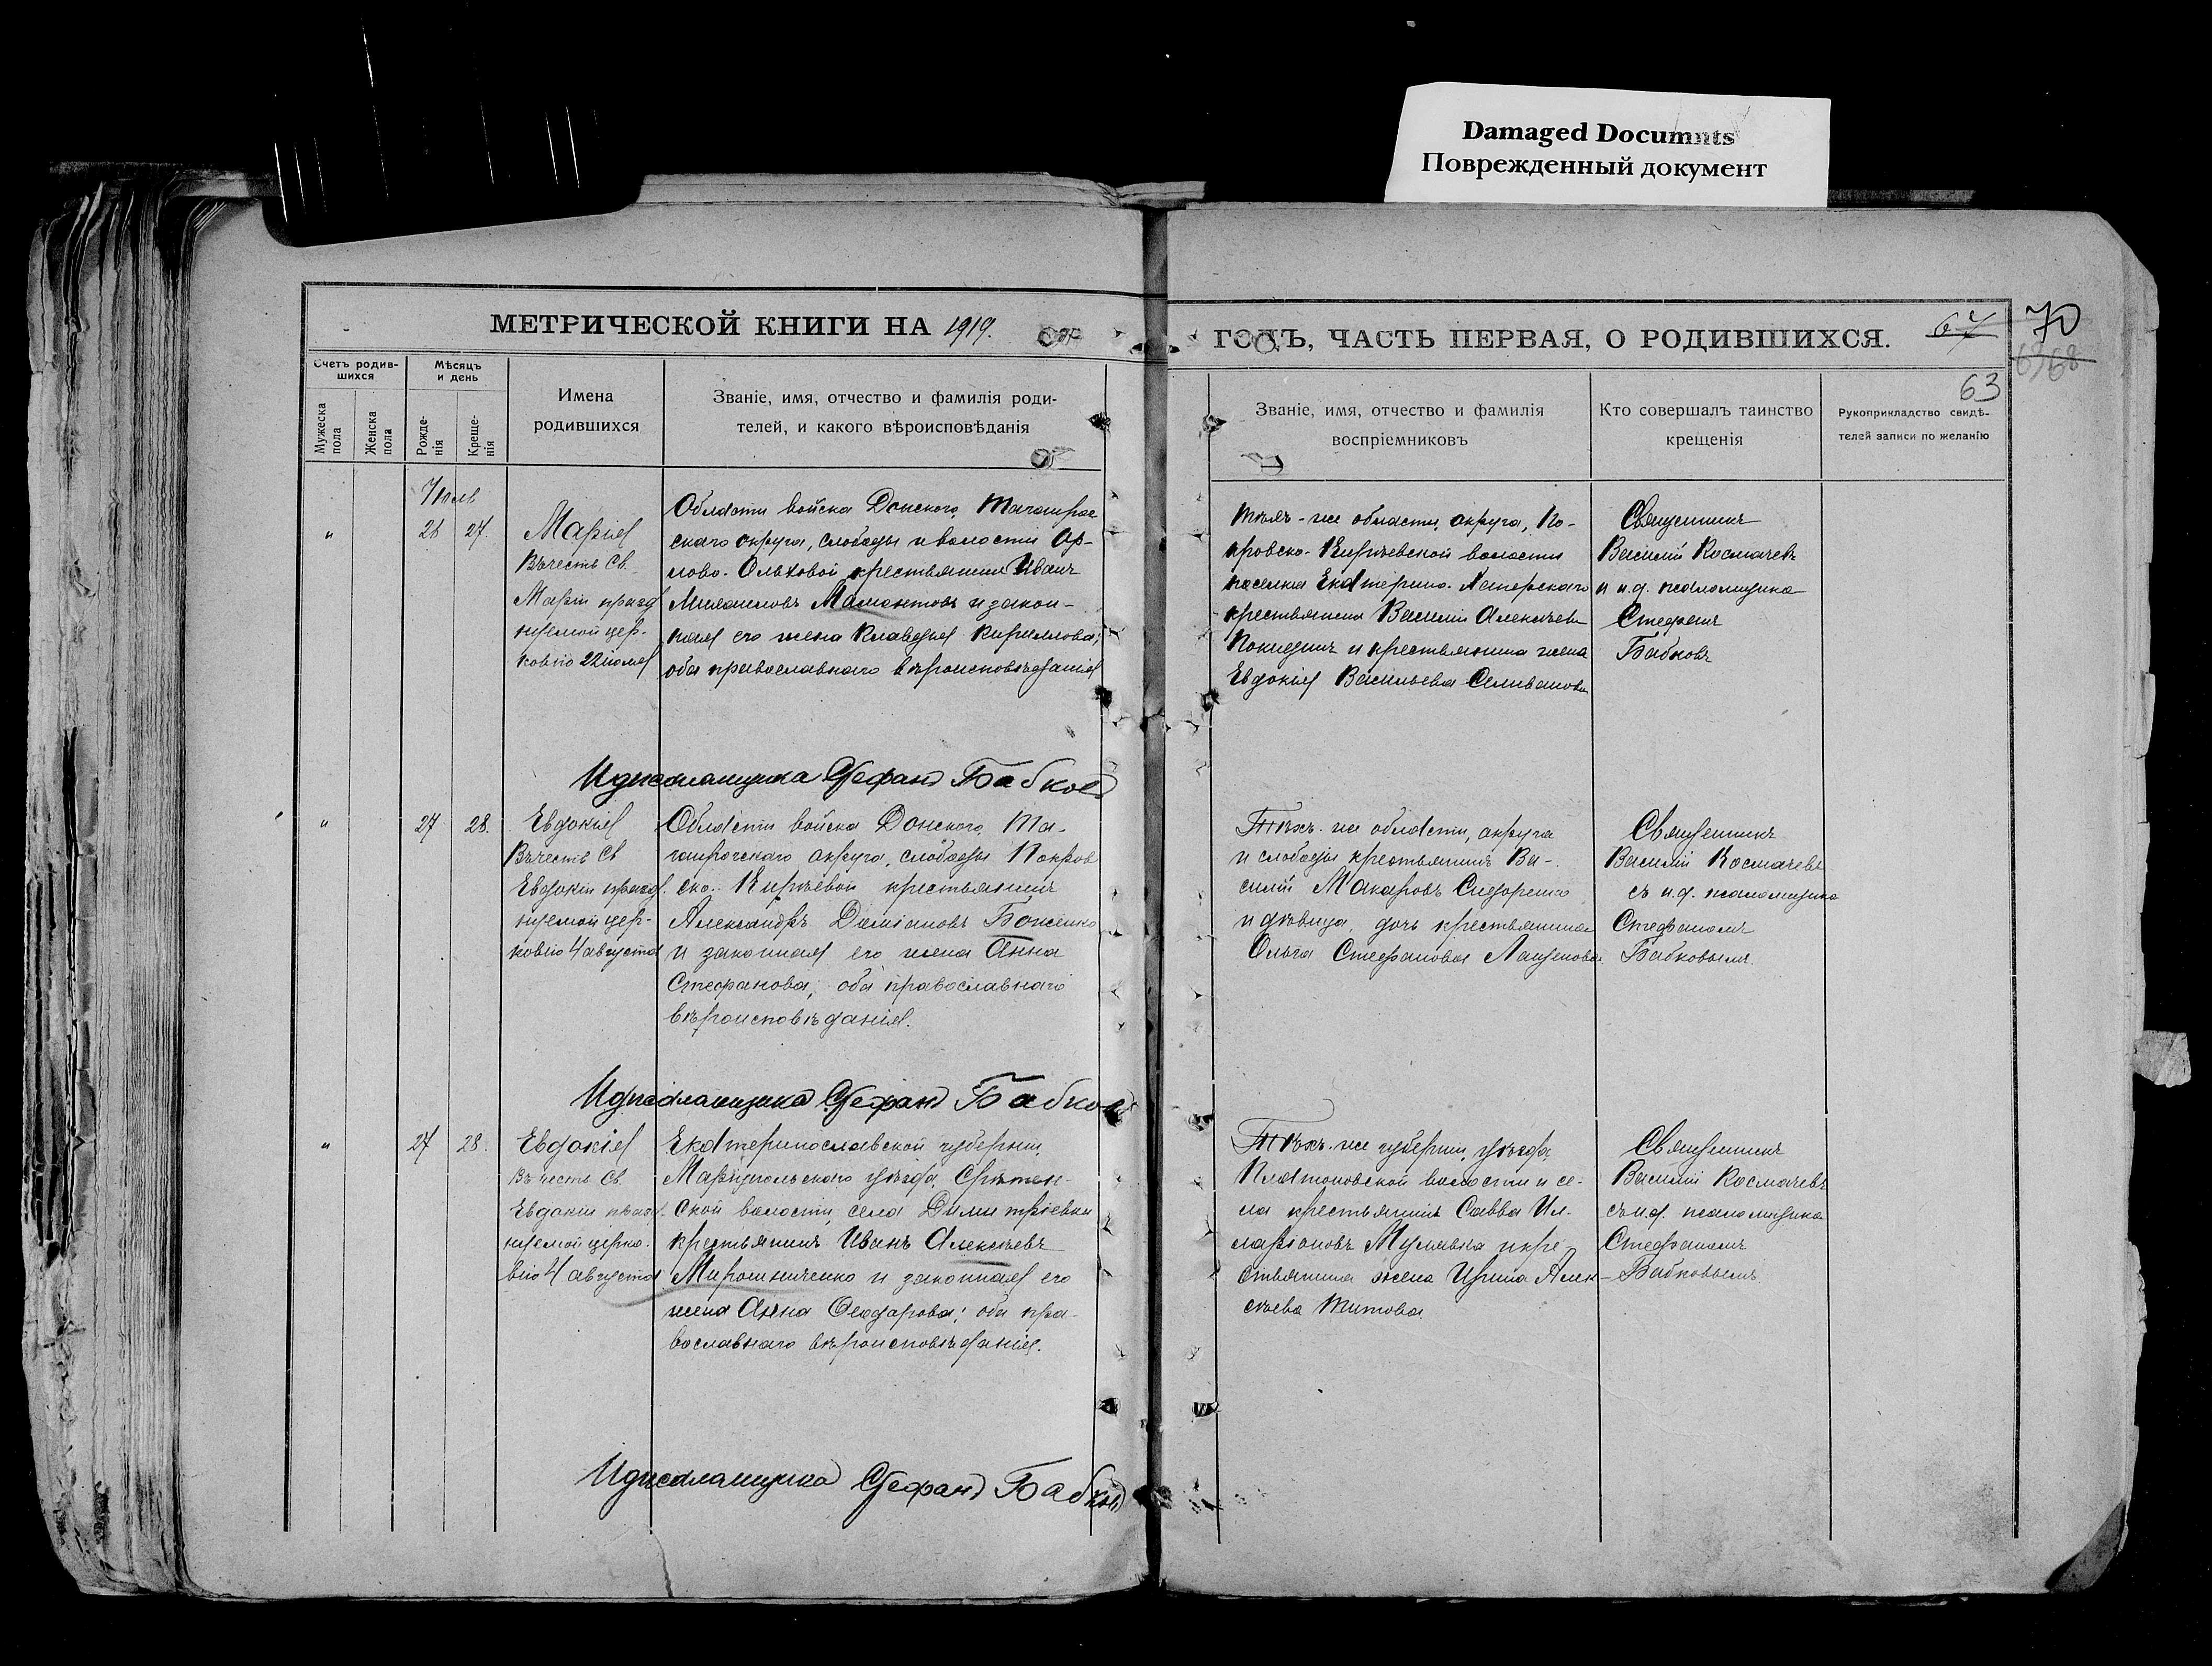 Damaged Documnts
Поврежденный документ
МЕТРИЧЕСКОЙ КНИГИ НА 1919.
ГОДЪ, ЧАСТЬ ПЕРВАЯ, О РОДИВШИХСЯ.
70
63
Счетъ родив-
шихся
Мѣсяцъ
и день
Мужеска
пола
Женска
пола
Рожде-
нія
Креще-
нія
Имена
родившихся
Званіе, имя, отчество и фамилія роди-
телей, и какого вѣроисповѣданія
Званіе, имя, отчество и фамилія
воспріемниковъ
Кто совершалъ таинство
крещенія
Рукоприкладство свидѣ-
телей записи по желанію
Июль
" 26 27.
Марія
Въ честь Св.
Маріи празд
нуемой цер-
ковію 22 іюля
Области войска Донского, Таганрог
скаго округа, слободы и волости Ор-
лово-Ольховой крестьянинъ Иванъ
Михаиловъ Мамонтовъ и закон-
ная его жена Клавдія Кириллова;
оба православнаго вѣроисповѣданія
Тѣхъ-же области, округа, По-
кровско-Кирѣевской волости
поселка Екатерино-
крестьянинъ Василій Алексѣевъ
и крестьянина жена
Евдокія Васильева Селиванова
Священникъ
Василій Космачевъ
и и.д. псаломщика
Стефанъ
Бабковъ
И д псаломщика Стефанъ Бабковъ
" 27 28.
Евдокія
Въ честь Св
Евдокіи празд.
нуемой цер-
ковію 4 августа
Области войска Донского, Та-
ганрогскаго округа, слободы Покров
ско-Кирѣевой крестьянинъ
Александръ Даміановъ Боженко
и законная его жена Анна
Стефанова; оба православнаго
вѣроисповѣданія.
Тѣхъ-же области, округа
и слободы крестьянинъ Ва-
силій Макаровъ Сидоренко
и дѣвица, дочь крестьянина
Ольга Стефанова Лащенова
Священникъ
Василій Космачевъ
съ и.д. псаломщика
Стефаномъ
Бабковымъ.
И д псаломщика Стефанъ Бабковъ
" 27 28.
Евдокія
Въ честь Св
Евдокіи празд.
нуемой церко-
вію 4 августа
Екатеринославской губерніи,
Маріупольскаго уѣзда, Срѣтен-
ской волости, села Димитріевки
крестьянинъ Иванъ Алексѣевъ
Мирошниченко и законная его
жена Анна Ѳеодорова; оба пра-
вославнаго вѣроисповѣданія.
Тѣхъ-же губерніи, уѣзда,
Платоновской волости и се-
ла крестьянинъ Савва Ил-
ларіоновъ Мулявка и кре-
стьянина жена Ирина Алек-
сѣева Титова.
Священникъ
Василій Космачевъ
съ и.д. псаломщика
Стефаномъ
Бабковымъ.
И д псаломщика Стефанъ Бабковъ